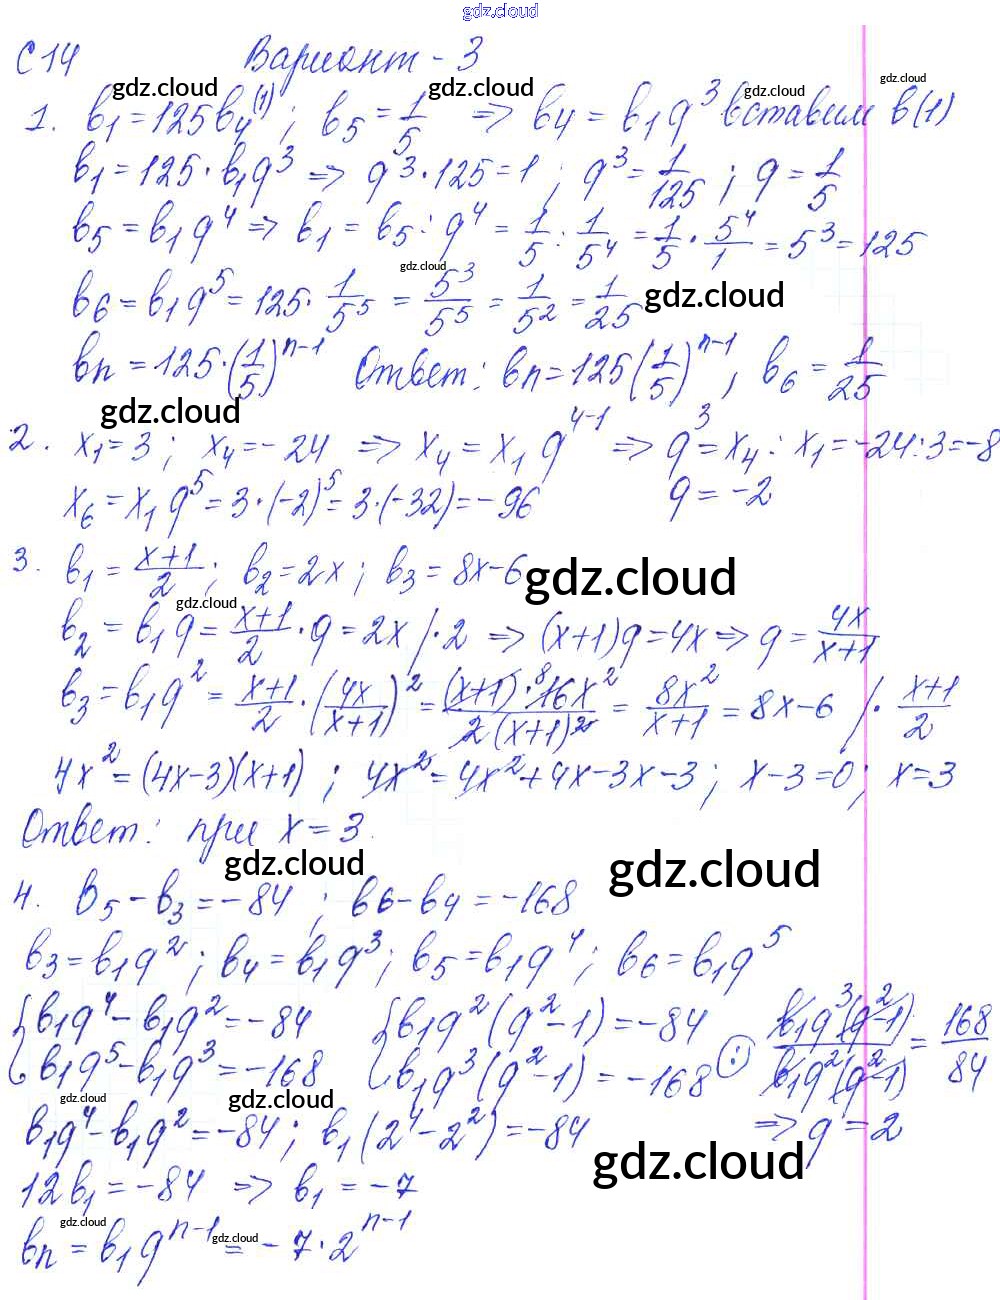 gdz.cloud
С 14 Вариант - 3
gdz.cloud gdz.cloud gdz.cloud gdz.cloud
1. b₁ = 125b₄ (1) ; b₅ = 1/5 => b₄ = b₁q³ вставим в (1)
b₁ = 125 · b₁q³ => q³ · 125 = 1 ; q³ = 1/125 ; q = 1/5
b₅ = b₁q⁴ => b₁ = b₅ : q⁴ = 1/5 : 1/5⁴ = 1/5 · 5⁴/1 = 5³ = 125
gdz.cloud
b₆ = b₁q⁵ = 125 · 1/5⁵ = 5³/5⁵ = 1/5² = 1/25 gdz.cloud
bn = 125 · (1/5)ⁿ⁻¹ Ответ: bn = 125(1/5)ⁿ⁻¹, b₆ = 1/25
gdz.cloud
2. x₁ = 3 ; x₄ = - 24 => x₄ = x₁ q⁴⁻¹ => q³ = x₄ : x₁ = -24 : 3 = -8
x₆ = x₁ q⁵ = 3 · (-2)⁵ = 3 · (-32) = -96 q = -2
3. b₁ = (x+1)/2 ; b₂ = 2x ; b₃ = 8x-6 gdz.cloud
gdz.cloud
b₂ = b₁q = (x+1)/2 · q = 2x / · 2 => (x+1)q = 4x => q = 4x/(x+1)
b₃ = b₁q² = (x+1)/2 · (4x/(x+1))² = (x+1) · ⁸16x²/2(x+1)² = 8x²/(x+1) = 8x-6 / · (x+1)/2
4x² = (4x-3)(x+1) ; 4x² = 4x² + 4x - 3x - 3 ; x-3 = 0 ; x = 3
Ответ: при x = 3.
gdz.cloud gdz.cloud
4. b₅ - b₃ = -84 ; b₆ - b₄ = -168
b₃ = b₁q² ; b₄ = b₁q³ ; b₅ = b₁q⁴ ; b₆ = b₁q⁵
{b₁q⁴ - b₁q² = -84 {b₁q²(q²-1) = -84 b₁q³(q²-1)/b₁q²(q²-1) = 168/84
b₁q⁵ - b₁q³ = -168 b₁q³(q²-1) = -168 (:)
gdz.cloud gdz.cloud
b₁q⁴ - b₁q² = -84 ; b₁(2⁴ - 2²) = -84 => q = 2
gdz.cloud
12b₁ = -84 => b₁ = -7
gdz.cloud gdz.cloud
bn = b₁qⁿ⁻¹ = -7 · 2ⁿ⁻¹